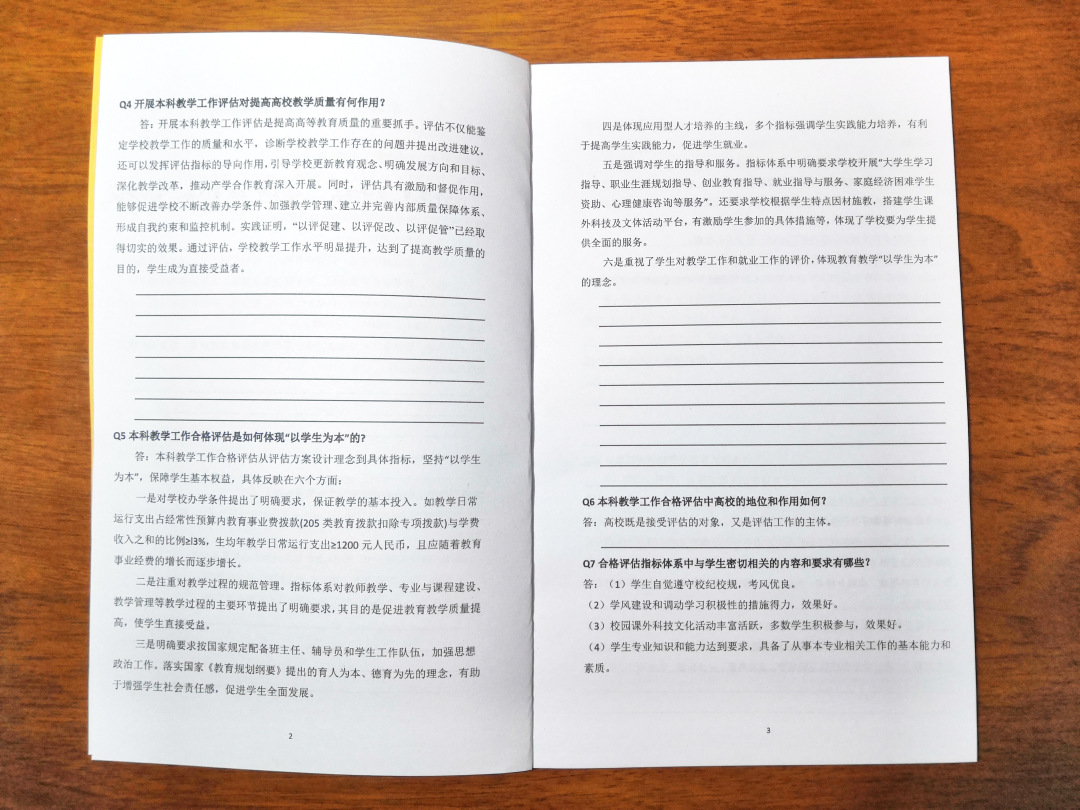 Q4 开展本科教学工作评估对提高高校教学质量有何作用？
答：开展本科教学工作评估是提高高等教育质量的重要抓手。评估不仅能鉴
定学校教学工作的质量和水平，诊断学校教学工作存在的问题并提出改进建议，
还可以发挥评估指标的导向作用，引导学校更新教育观念、明确发展方向和目标、
深化教学改革，推动产学合作教育深入开展。同时，评估具有激励和督促作用，
能够促进学校不断改善办学条件、加强教学管理、建立并完善内部质量保障体系、
形成自我约束和监控机制。实践证明，“以评促建、以评促改、以评促管”已经取
得切实的效果。通过评估，学校教学工作水平明显提升，达到了提高教学质量的
目的，学生成为直接受益者。
Q5 本科教学工作合格评估是如何体现“以学生为本”的？
答：本科教学工作合格评估从评估方案设计理念到具体指标，坚持“以学生
为本”，保障学生基本权益，具体反映在六个方面：
一是对学校办学条件提出了明确要求，保证教学的基本投入。如教学日常
运行支出占经常性预算内教育事业费拨款(205 类教育拨款扣除专项拨款)与学费
收入之和的比例≥l3%，生均年教学日常运行支出≥1200 元人民币，且应随着教育
事业经费的增长而逐步增长。
二是注重对教学过程的规范管理。指标体系对教师教学、专业与课程建设、
教学管理等教学过程的主要环节提出了明确要求，其目的是促进教育教学质量提
高，使学生直接受益。
三是明确要求按国家规定配备班主任、辅导员和学生工作队伍，加强思想
政治工作。落实国家《教育规划纲要》提出的育人为本、德育为先的理念，有助
于增强学生社会责任感，促进学生全面发展。
2
四是体现应用型人才培养的主线，多个指标强调学生实践能力培养，有利
于提高学生实践能力，促进学生就业。
五是强调对学生的指导和服务。指标体系中明确要求学校开展“大学生学习
指导、职业生涯规划指导、创业教育指导、就业指导与服务、家庭经济困难学生
资助、心理健康咨询等服务”。还要求学校根据学生特点因材施教，搭建学生课
外科技及文体活动平台，有激励学生参加的具体措施等，体现了学校要为学生提
供全面的服务。
六是重视了学生对教学工作和就业工作的评价，体现教育教学“以学生为本”
的理念。
Q6 本科教学工作合格评估中高校的地位和作用如何？
答：高校既是接受评估的对象，又是评估工作的主体。
Q7 合格评估指标体系中与学生密切相关的内容和要求有哪些？
答：（1）学生自觉遵守校纪校规，考风优良。
（2）学风建设和调动学习积极性的措施得力，效果好。
（3）校园课外科技文化活动丰富活跃，多数学生积极参与，效果好。
（4）学生专业知识和能力达到要求，具备了从事本专业相关工作的基本能力和
素质。
3